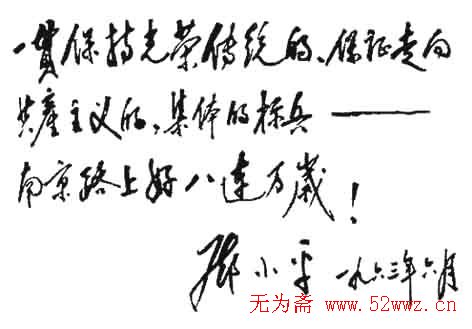 一贯保持光荣传统的、保证走向
共产主义的，集体的标兵——
南京路上好八连万岁！
邓小平 一九六三年六月
无为斋 www.52wwz.cn